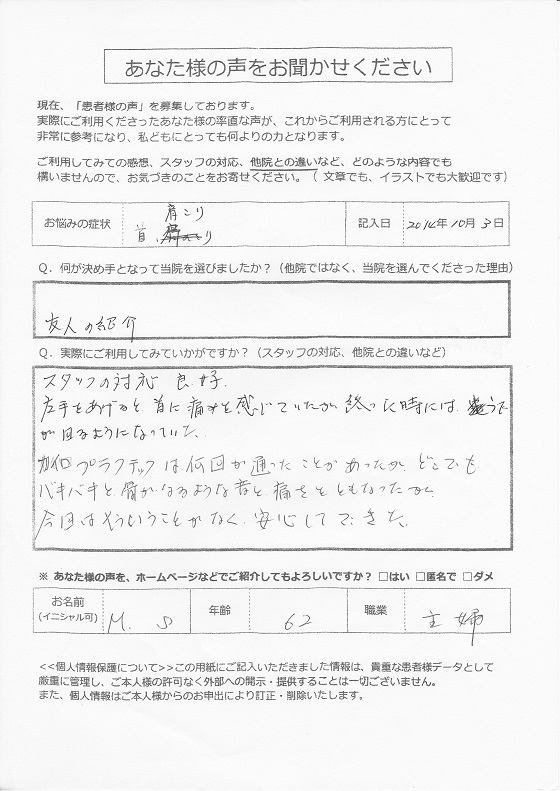 あなた様の声をお聞かせください
現在、「患者様の声」を募集しております。
実際にご利用くださったあなた様の率直な声が、これからご利用される方にとって
非常に参考になり、私どもにとっても何よりの力となります。
ご利用してみての感想、スタッフの対応、他院との違いなど、どのような内容でも
構いませんので、お気づきのことをお寄せください。（ 文章でも、イラストでも大歓迎です）
お悩みの症状
肩こり
首、
記入日 2014年10月3日
Q．何が決め手となって当院を選びましたか？（他院ではなく、当院を選んでくださった理由）
友人の紹介
Q．実際にご利用してみていかがですか？（スタッフの対応、他院との違いなど）
スタッフの対応 良好.
左手をあげると、首に痛みを感じていたが、終った時には、うで
が回るようになっていた。
カイロプラフテックは何回か通ったことがあったが、どこでも
バキバキと、骨がなるような音と、痛さをともなったが、
今回はそういうことがなく、安心してできた。
※ あなた様の声を、ホームページなどでご紹介してもよろしいですか？ □はい □匿名で □ダメ
お名前
(イニシャル可)
M. S
年齢 62 職業 主婦
<<個人情報保護について>>この用紙にご記入いただきました情報は、貴重な患者様データとして
厳重に管理し、ご本人様の許可なく外部への開示・提供することは一切ございません。
また、個人情報はご本人様からのお申出により訂正・削除いたします。